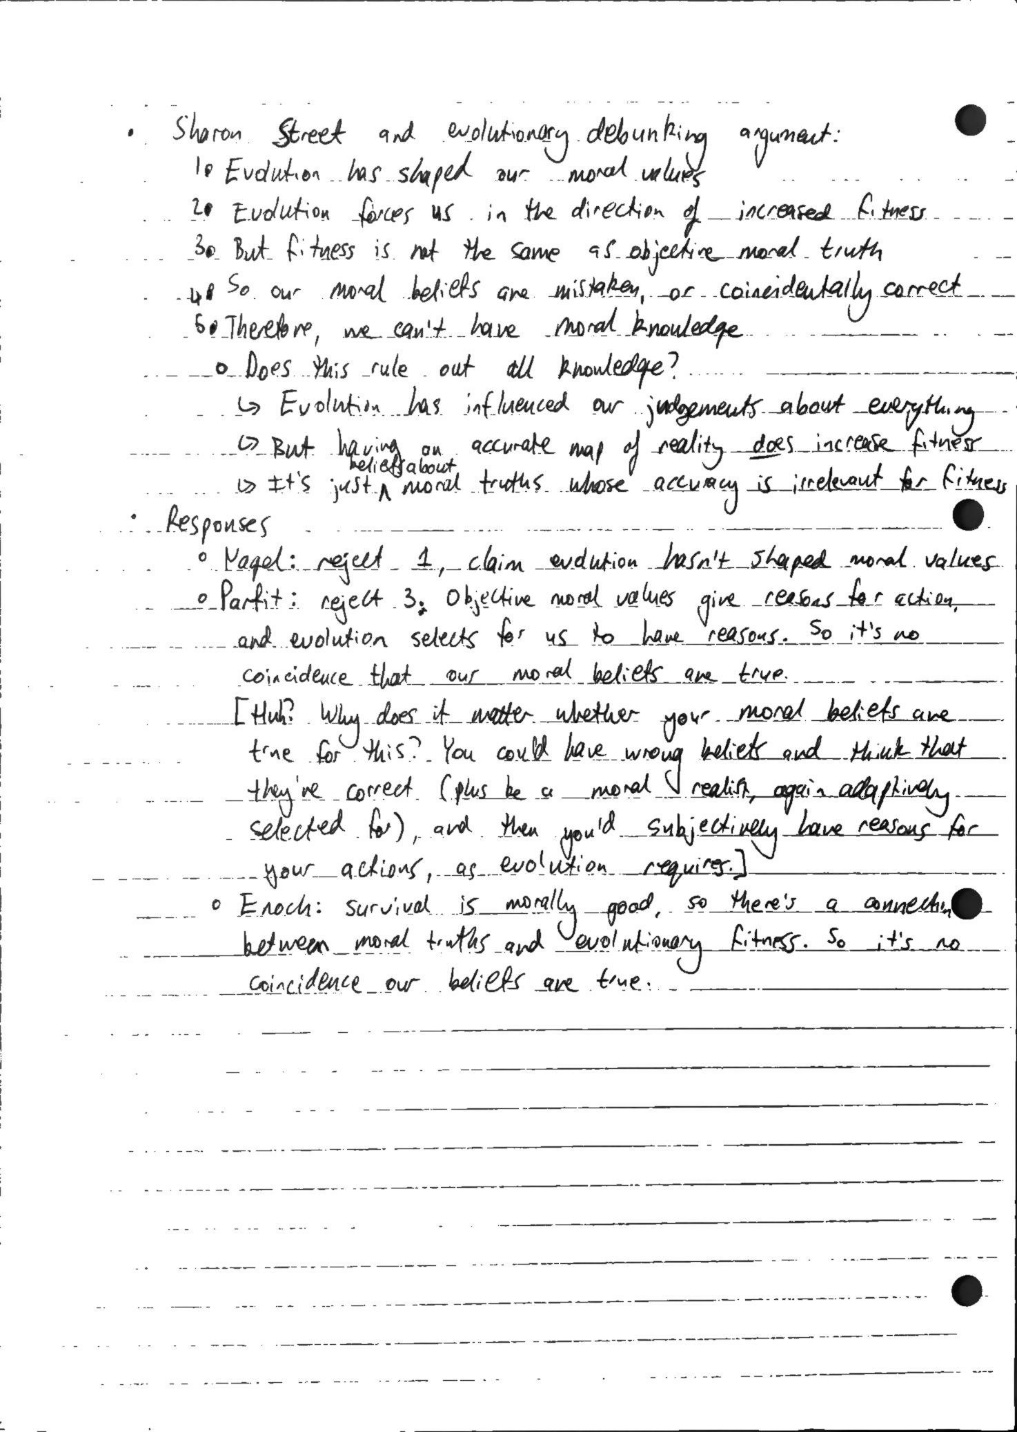 • Sharon Street and evolutionary debunking argument:
1. Evolution has shaped our moral values
2. Evolution forces us in the direction of increased fitness
3. But fitness is not the same as objective moral truth
4. So our moral beliefs are mistaken, or coincidentally correct
5. Therefore, we can't have moral knowledge
o Does this rule out all knowledge?
↳ Evolution has influenced our judgements about everything
↳ But having an accurate map of reality does increase fitness
beliefs about
↳ It's just ^ moral truths whose accuracy is irrelevant for fitness
• Responses
o Nagel: reject 1, claim evolution hasn't shaped moral values
o Parfit: reject 3: Objective moral values give reasons for action,
and evolution selects for us to have reasons. So it's no
coincidence that our moral beliefs are true.
[Huh? Why does it matter whether your moral beliefs are
true for this? You could have wrong beliefs and think that
they're correct (plus be a moral realist, again adaptively
selected for), and then you'd subjectively have reasons for
your actions, as evolution requires.]
o Enoch: survival is morally good, so there's a connection
between moral truths and evolutionary fitness. So it's no
coincidence our beliefs are true.